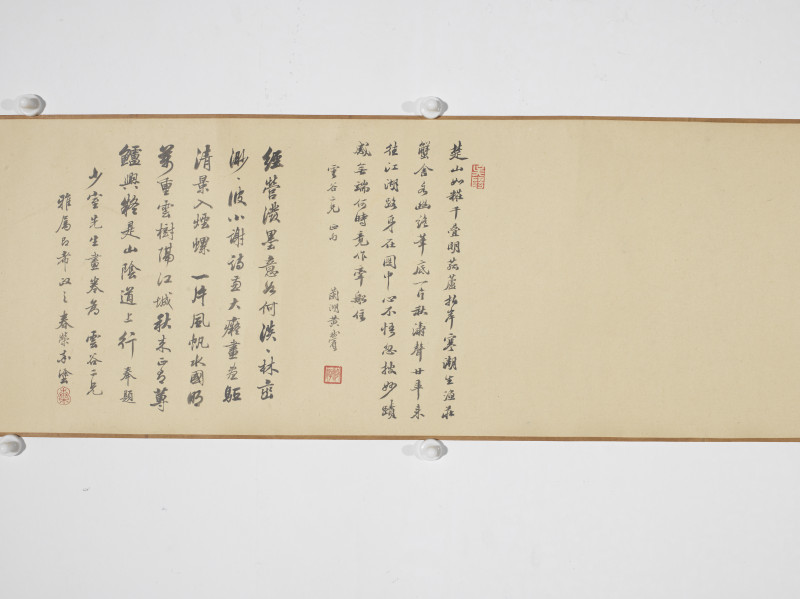 楚山如 千疊明 蘆拍岸寒潮生漁莊
蟹舍 幽 筆底一片秋濤聲廿年來
往江湖路身在圖中心不悟忽披妙蹟
感無端何時竟作牽船住
雲谷二兄正
蘭湖黃
經營潑墨意如何淡淡林巒
渺渺波小謝詩兼大癡畫盡驅
清景入煙螺一片風帆水國明
萬重雲樹隔江城秋來正有蓴
鱸興疑是山陰道上行奉題
少室先生畫卷為雲谷二兄
雅屬即希政之春榮